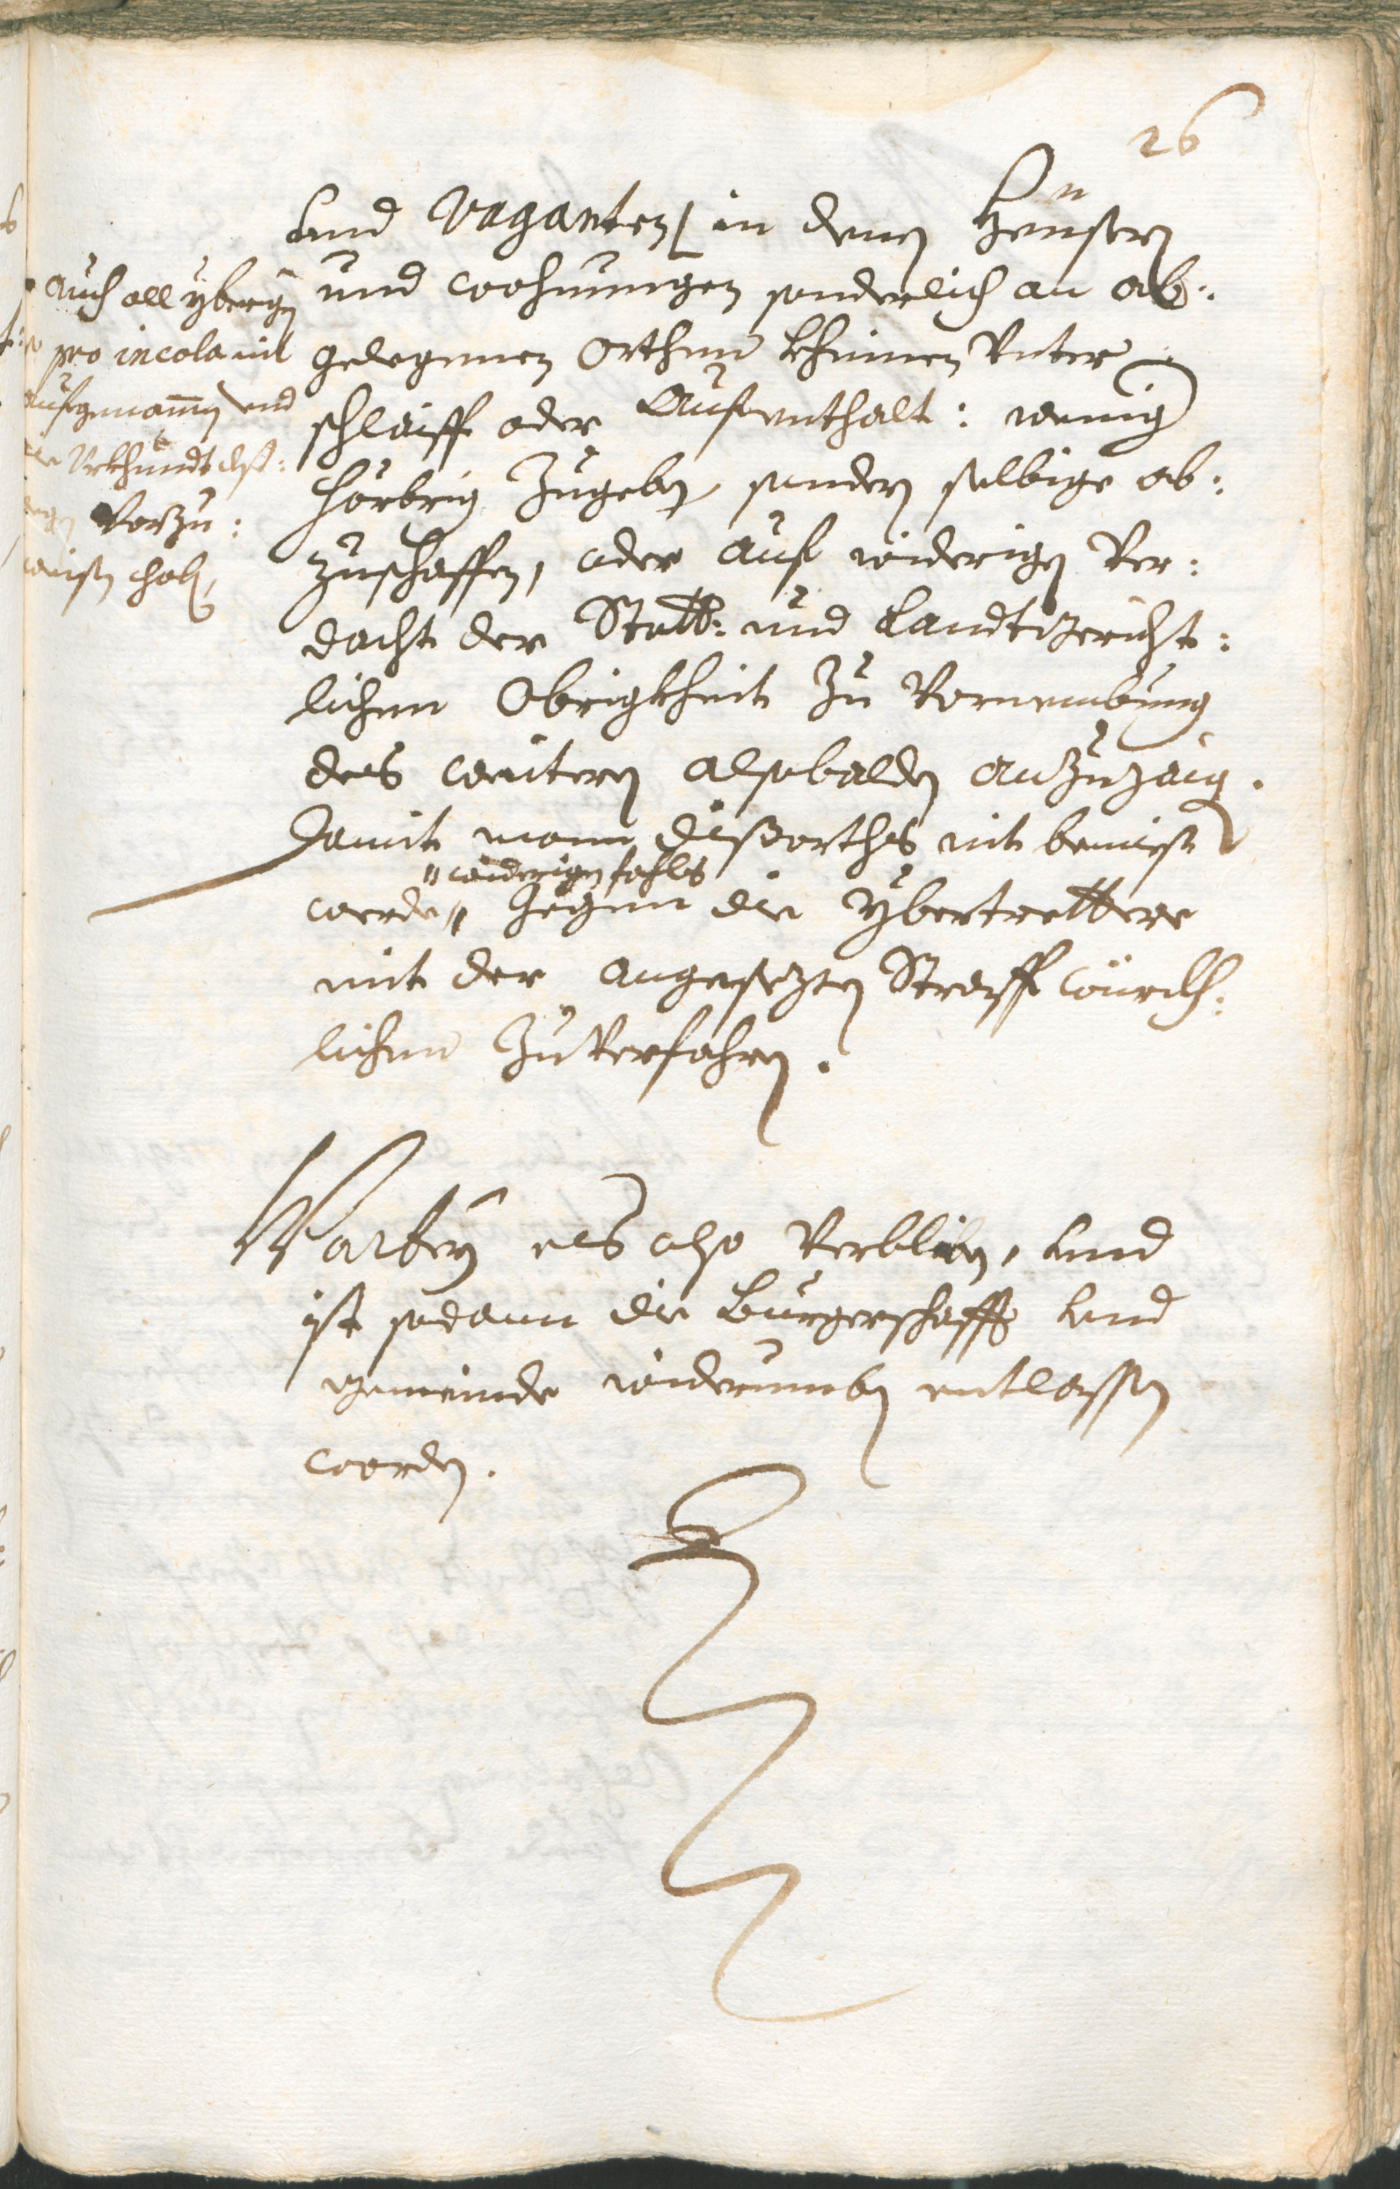 26
und Vaganten in denen Heusern
und wohnungen sonderlich an ab:
gelegenen Orthen kheinen Unter
schlaiff oder Aufenthalt: wenig
hörbrig zugeben, sondern selbige ab:
zuschaffen, oder auf widerigen Ver:
dacht der Statt: und Landtgericht:
lichen Obrigkheit zu Vornembung
des weitern alsobalden anzuzaig.
Damit mann dißorths nit bemiest
"widerigen fahls
werde" gegen die ybertrettere
mit der angesezten Straff würckh:
lichen zu verfahren.
auch all ybrige
pro incola nit
aufgenomen und
die Urkhundt deß:
wegen Vorzu:
weisen hab,
Warbey es also verbliben, und
ist sodann die Burgerschafft und
gemeinde widerumben entlassen
worden.